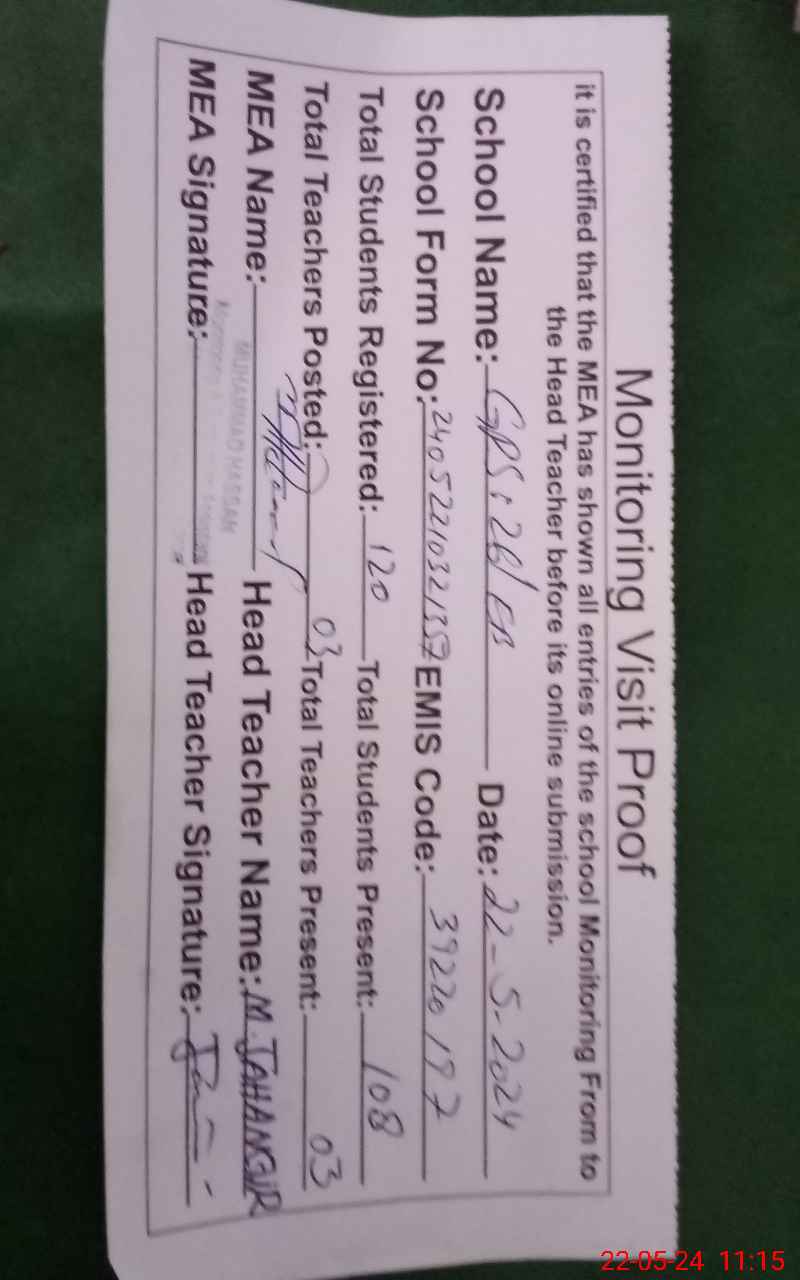 Monitoring Visit Proof
it is certified that the MEA has shown all entries of the school Monitoring From to
the Head Teacher before its online submission.
School Name: GPS: 26/EB Date: 22-5-2024
School Form No: 24052210321357 EMIS Code: 39220197
Total Students Registered: 120 Total Students Present: 108
Total Teachers Posted: 03 Total Teachers Present: 03
MEA Name: Head Teacher Name: M. JAHANGIR
MUHAMMAD HASSAN
MEA Signature: Head Teacher Signature:
22-05-24 11:15